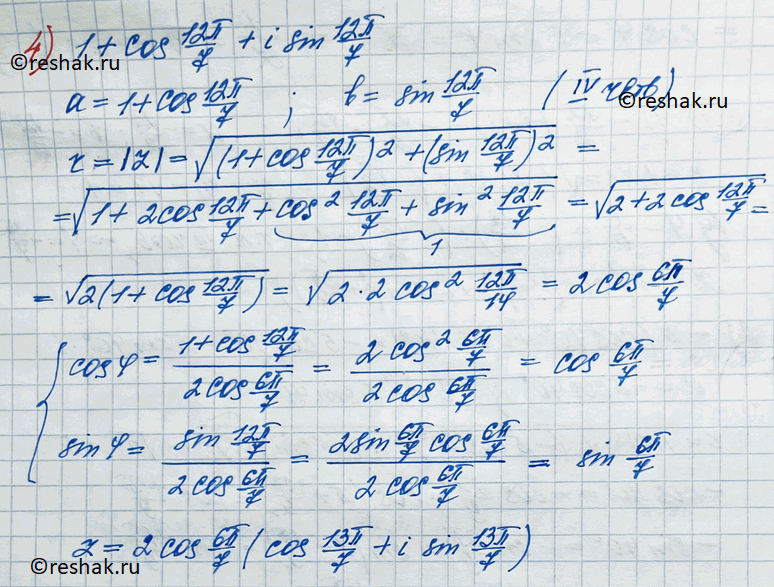 4) 1 + cos 12π/7 + i sin 12π/7
©reshak.ru
a = 1 + cos 12π/7 ; b = sin 12π/7 (IV четв)
©reshak.ru
r = |z| = √((1 + cos 12π/7)² + (sin 12π/7)²) =
= √(1 + 2cos 12π/7 + cos² 12π/7 + sin² 12π/7) = √(2 + 2 cos 12π/7) =
1
= √(2(1 + cos 12π/7)) = √(2 · 2 cos² 12π/14) = 2 cos 6π/7
{ cos φ = (1 + cos 12π/7)/(2 cos 6π/7) = (2 cos² 6π/7)/(2 cos 6π/7) = cos 6π/7
sin φ = (sin 12π/7)/(2 cos 6π/7) = (2 sin 6π/7 cos 6π/7)/(2 cos 6π/7) = sin 6π/7
z = 2 cos 6π/7 (cos 13π/7 + i sin 13π/7)
©reshak.ru
©reshak.ru